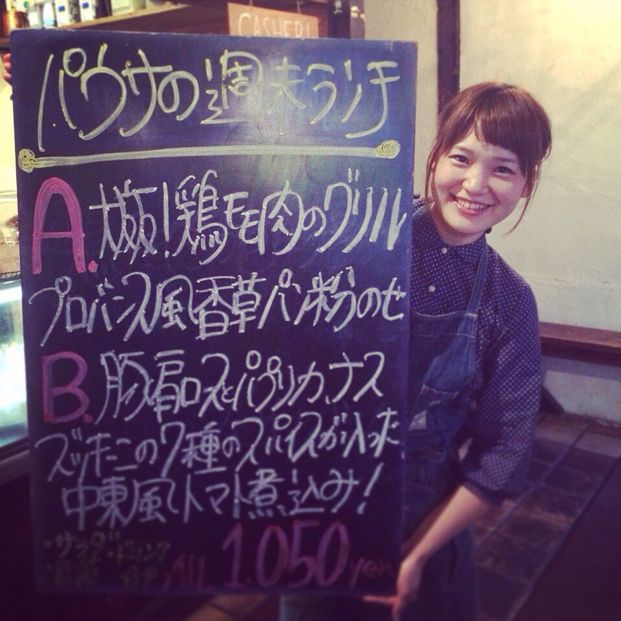 CASHER!
パウサの週末ランチ
A. 大阪!鶏モモ肉のグリル
プロバンス風香草パン粉のせ
B. 豚肩ロースとパプリカ、ナス
ズッキーニの7種のスパイスが入った
中東風トマト煮込み!
・サラダ・ドリンク
付き All 1,050 yen